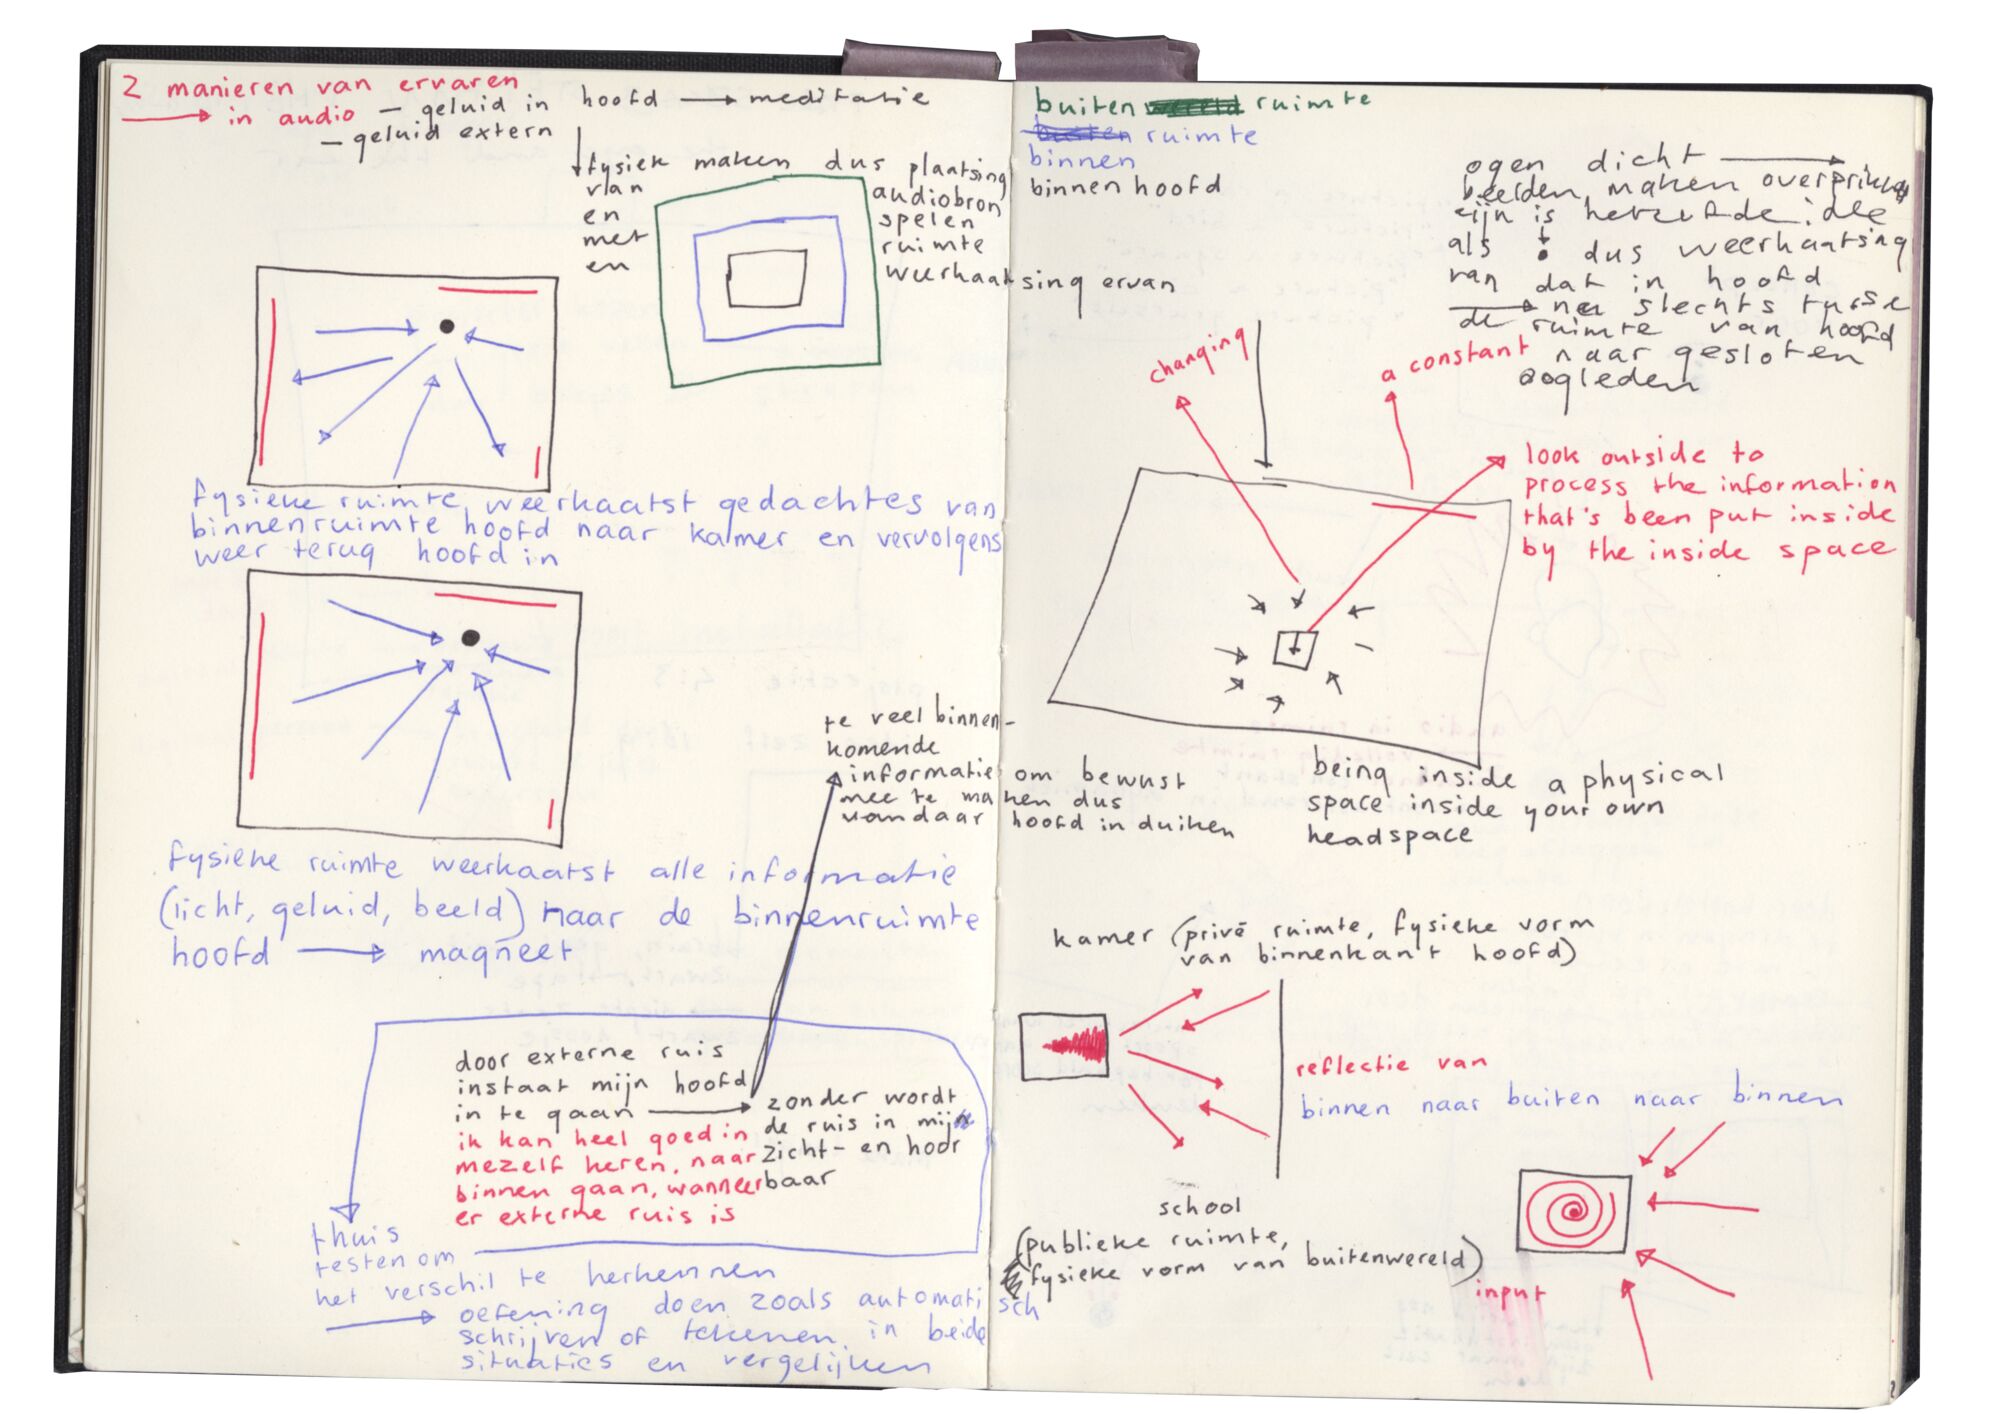 2 manieren van ervaren
→ in audio – geluid in hoofd → meditatie
– geluid extern
fysiek maken dus plaatsing
van audiobron
en spelen
met ruimte
en weerkaatsing ervan
fysieke ruimte, weerkaatst gedachtes van
binnenruimte hoofd naar kamer en vervolgens
weer terug hoofd in
fysieke ruimte weerkaatst alle informatie
(licht, geluid, beeld) naar de binnenruimte
hoofd → magneet
te veel binnen-
komende
informatie om bewust
mee te maken dus
vandaar hoofd in duiken
door externe ruis
instaat mijn hoofd
in te gaan →
zonder wordt
de ruis in mijn
zicht- en hoor
baar
ik kan heel goed in
mezelf keren, naar
binnen gaan, wanneer
er externe ruis is
thuis
testen om
het verschil te herkennen
→ oefening doen zoals automatisch
schrijven of tekenen in beide
situaties en vergelijken
buiten wereld ruimte
buiten ruimte
binnen
binnen hoofd
ogen dicht →
beelden maken
zijn is hetzelfde idee
als dus weerkaatsing
van dat in hoofd
→ nu slechts tusse
de ruimte van hoofd
naar gesloten
oogleden
changing
a constant
look outside to
process the information
that's been put inside
by the inside space
being inside a physical
space inside your own
headspace
kamer (privé ruimte, fysieke vorm
van binnenkant hoofd)
reflectie van
binnen naar buiten naar binnen
school
(publieke ruimte,
fysieke vorm van buitenwereld)
input